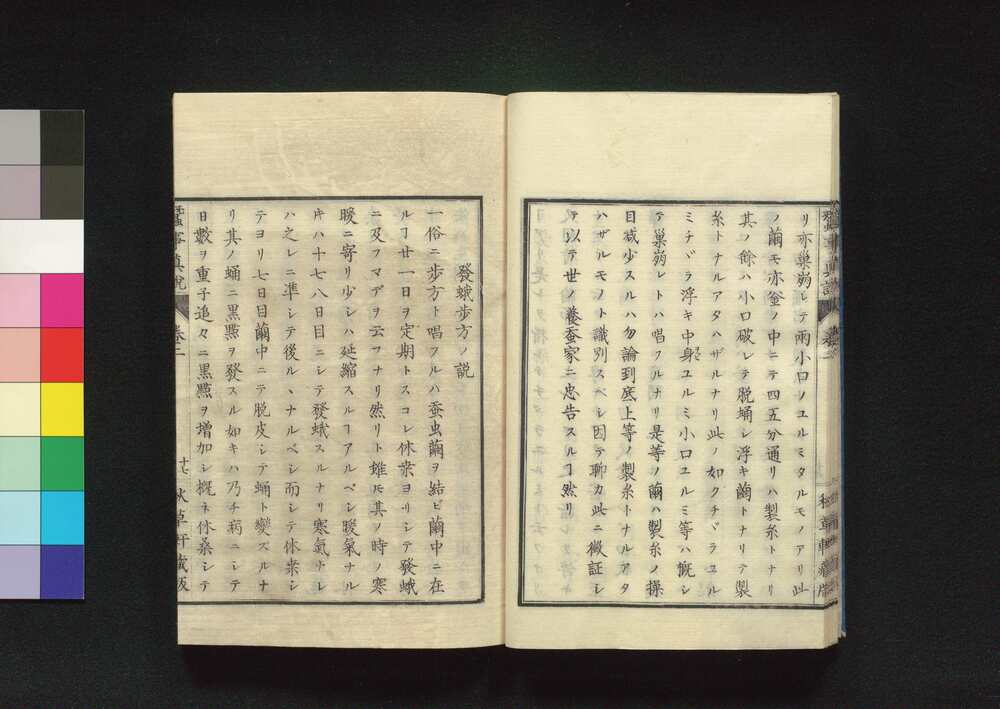 リ亦巢崩レテ兩小口ノユルミタルモノアリ此
ノ繭モ亦釜ノ中ニテ四五分通リハ製糸トナリ
其ノ餘ハ小口破レテ脱蛹シ浮キ繭トナリテ製
糸トナルアタハザルナリ此ノ如クチヾラユル
ミチヾラ浮キ中身ユルミ小口ユルミ等ハ慨シ
テ巢崩レトハ唱フルナリ是等ノ繭ハ製糸ノ操
目减少スルハ勿論到底上等ノ製糸トナルアタ
ハザルモノト識別スベシ因テ聊カ此ニ徴証シ
テ以テ世ノ養蚕家ニ忠告スルヿ然リ
發蛾歩方ノ説
一俗ニ歩方ト唱フルハ蚕虫繭ヲ結ビ繭中ニ在
ルヿ廿一日ヲ定期トスコレ休桒ヨリシテ發蛾
ニ及フマデヲ云フナリ然リト雖モ其ノ時ノ寒
暖ニ寄リ少シハ延縮スルヿアルベシ暖氣ナル
キハ十七八日目ニシテ發蛾スルナリ寒氣ナレ
ハ之レニ凖シテ後ルヽナルベシ而シテ休桒シ
テヨリ七日目繭中ニテ脱皮シテ蛹ト變ズルナ
リ其ノ蛹ニ黒㸃ヲ發スル如キハ乃チ病ニシテ
日數ヲ重子追々ニ黒㸃ヲ增加シ概ネ休桑シテ
眞説 卷二 十七 秋草軒藏版